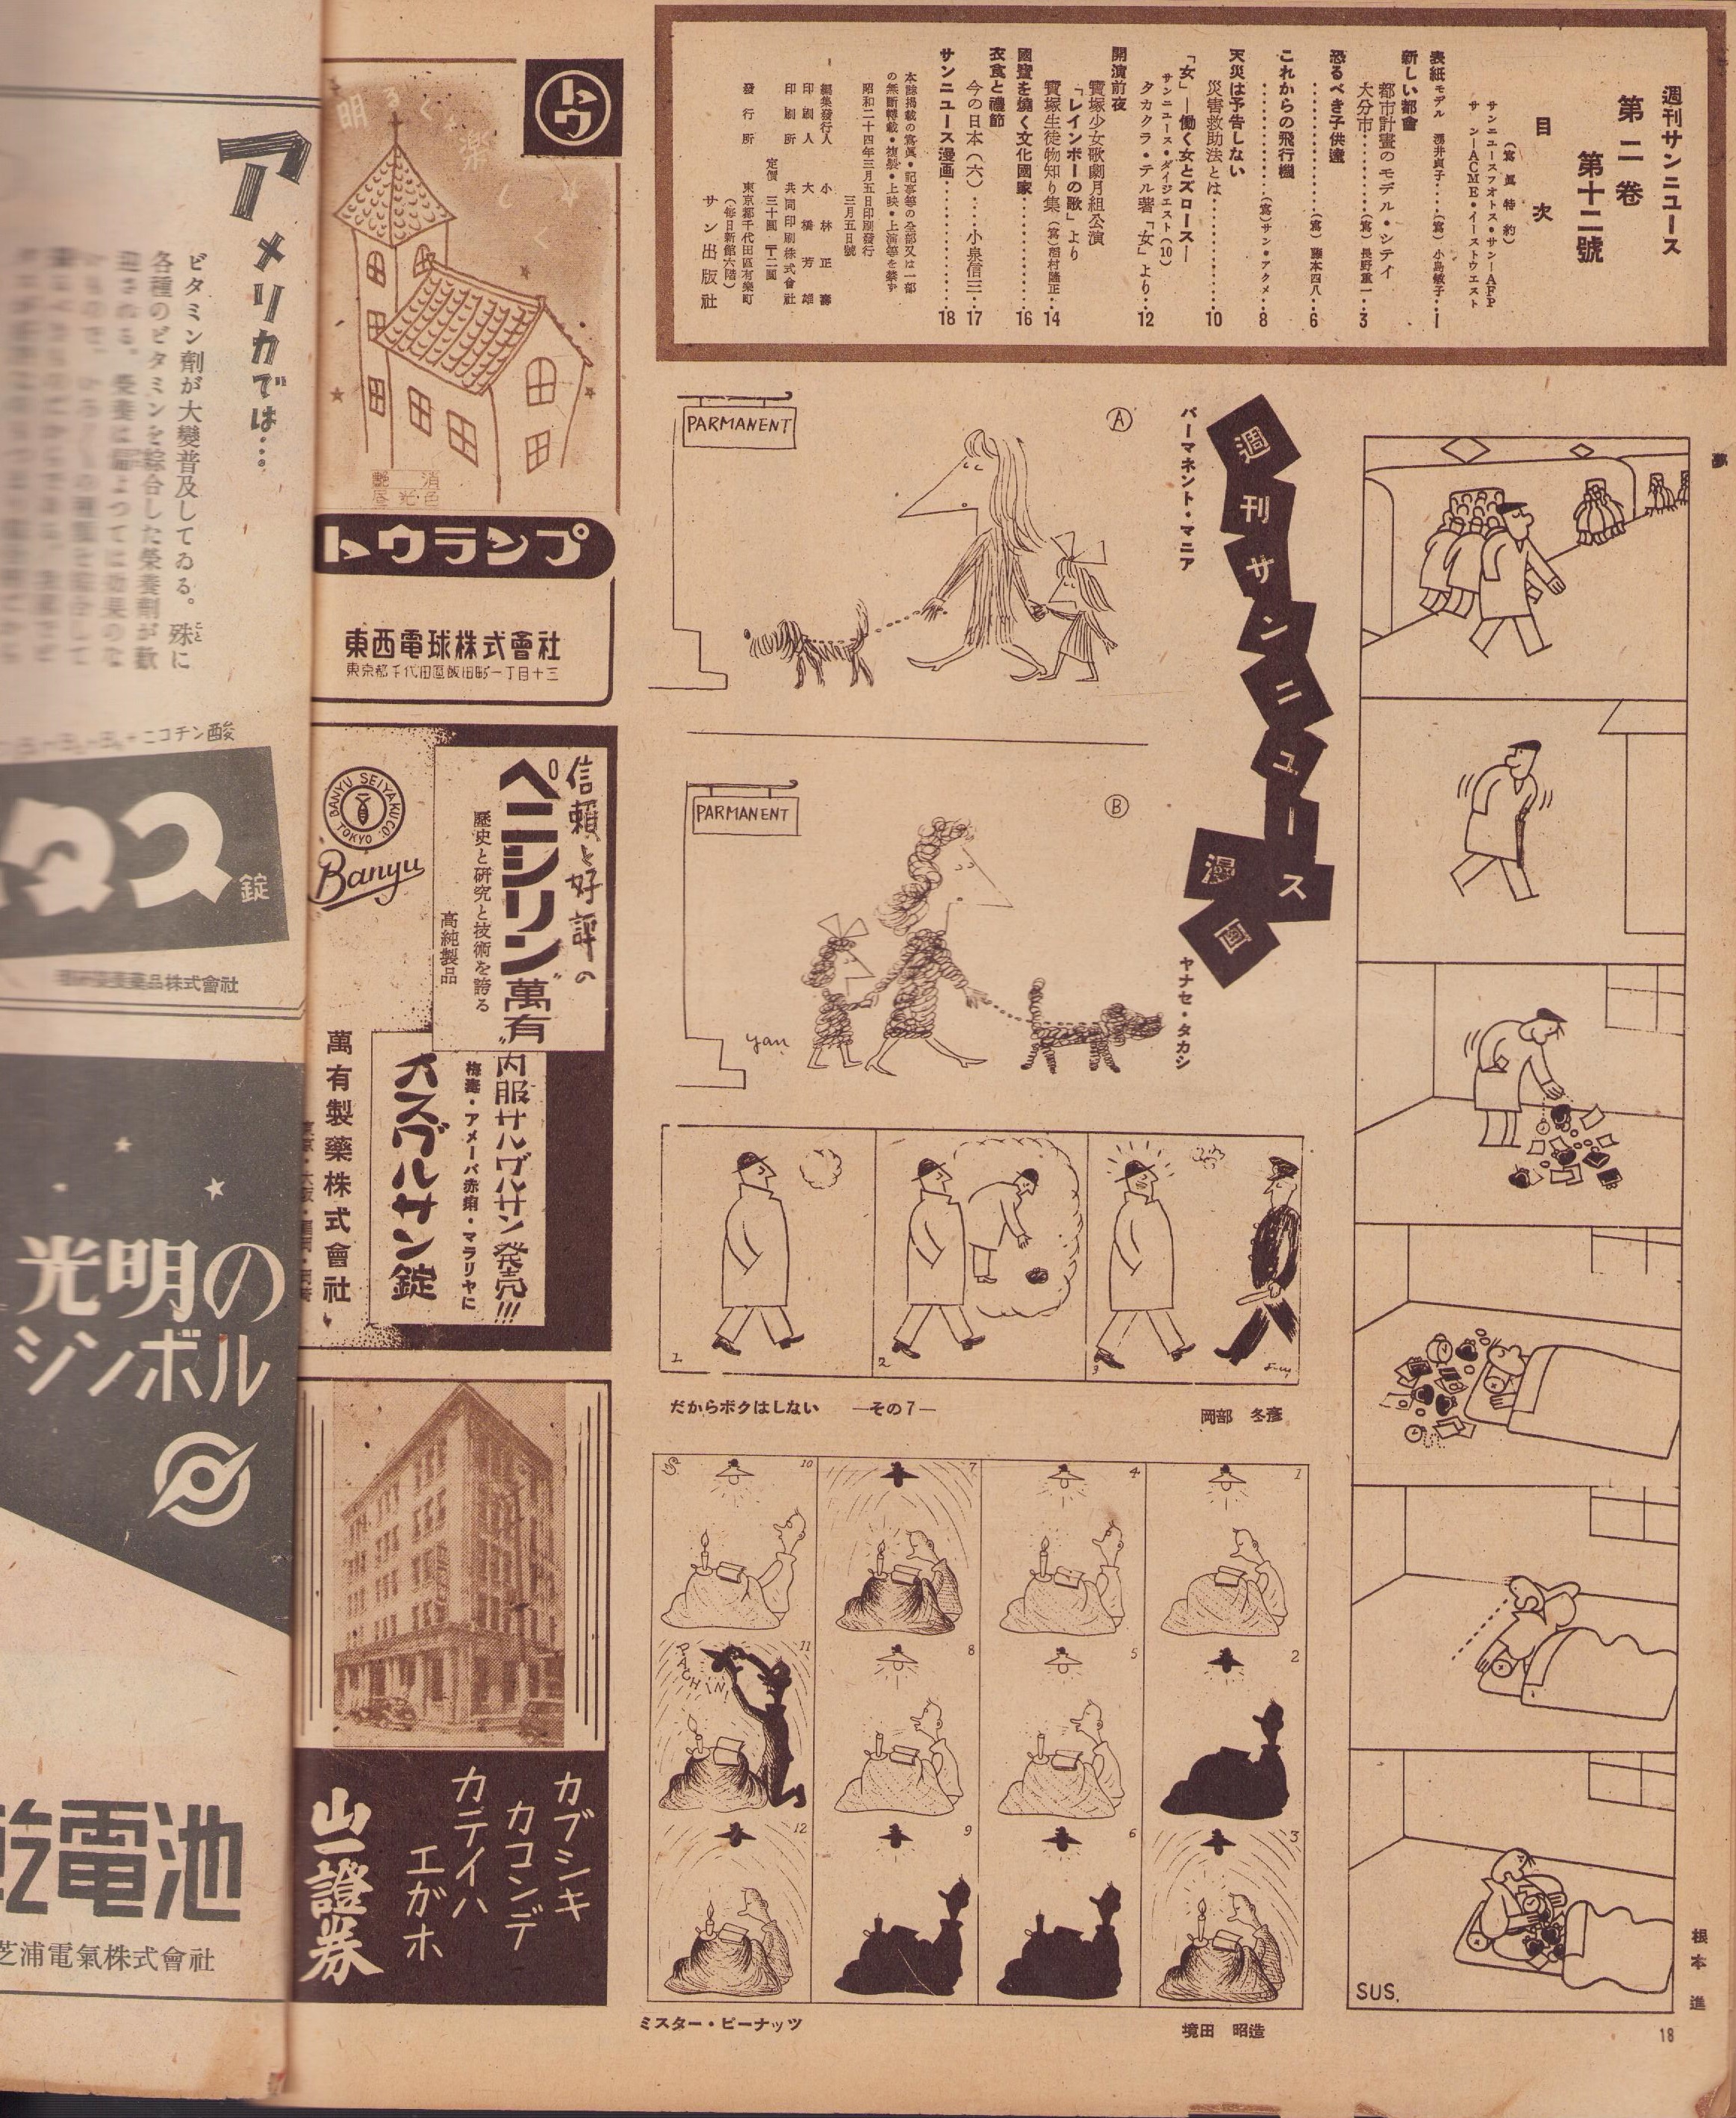 週刊サンニュース
第二卷
第十二號
目次
(寫眞特約)
サンニュースフオトス・サン―AFP
サン―ACME・イーストウエスト
表紙モデル 湧井貞子‥‥(寫)小島敏子‥1
新しい都會
都市計畫のモデル・シテイ
大分市‥‥‥‥‥‥(寫)長野重一‥3
恐るべき子供達
‥‥‥‥‥‥‥‥(寫)藤本四八‥6
これからの飛行機
‥‥‥‥‥‥(寫)サン・アクメ‥8
天災は予告しない
災害救助法とは‥‥‥‥‥‥10
「女」―働く女とズロース―
サンニュース・ダイジエスト(10)
タカクラ・テル著「女」より‥12
開演前夜
寶塚少女歌劇月組公演
「レインボーの歌」より
寶塚生徒物知り集(寫)稲村隆正‥14
國寶を燒く文化國家‥‥‥‥‥16
衣食と禮節
今の日本(六)‥‥小泉信三‥17
サンニュース漫画‥‥‥‥‥‥18
本誌掲載の寫眞・記事等の全部又は一部
の無斷轉載・複製・上映・上演等を禁ず
昭和二十四年三月五日印刷發行
三月五日號
編集發行人 小林正壽
印刷人 大橋芳雄
印刷所 共同印刷株式會社
定價 三十圓 〒二圓
發行所 東京都千代田區有樂町
(毎日新館六階)
サン出版社
夢
根本 進
SUS.
18
週刊サンニュース
漫画
パーマネント・マニア
ヤナセ・タカシ
A
PARMANENT
B
PARMANENT
yan
1
2
3
だからボクはしない ―その7―
岡部 冬彦
1
2
3
4
5
6
7
8
9
10
11
12
S.
PACHIN
ミスター・ピーナッツ
境田 昭造
トウ
明るく・楽しく
艶消
昼光色
トウランプ
東西電球株式會社
東京都千代田區飯田町一丁目十三
信頼と好評の
ペニシリン"萬有"
歴史と研究と技術を誇る
高純製品
BANYU SEIYAKU CO. TOKYO
Banyu
内服サルヴルサン発売!!!
梅毒・アメーバ赤痢・マラリヤに
大スヴルサン錠
萬有製藥株式會社
カブシキ
カコンデ
カテイハ
エガホ
山一證券
アメリカでは…。
ビタミン劑が大變普及してゐる。殊に
各種のビタミンを綜合した榮養劑が歡
ニコチン酸
タス
錠
藥品株式會社
光明の
シンボル
乾電池
芝浦電氣株式會社